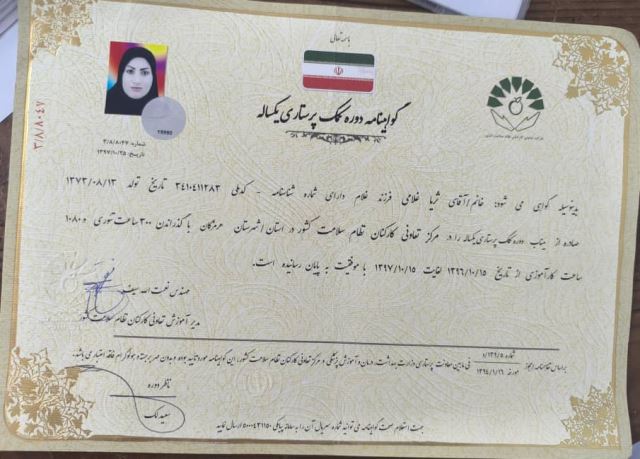 باسمه تعالی
گواهینامه دوره کمک پرستاری یکساله
شماره: ۳/۸/۸۰۴۷
تاریخ: ۱۳۹۷/۱۰/۲۵
۳/۸/۸۰۴۷
بدینوسیله گواهی می شود: خانم/آقای ثریا غلامی فرزند غلام دارای شماره شناسنامه - کدملی ۳۴۱۰۴۱۱۲۸۳ تاریخ تولد ۱۳۷۳/۰۸/۱۳
صادره از میناب دوره کمک پرستاری یکساله را در مرکز تعاونی کارکنان نظام سلامت کشور در استان/شهرستان هرمزگان با گذراندن ۳۰۰ ساعت تئوری و ۱۰۸۰
ساعت کارآموزی از تاریخ ۱۳۹۶/۱۰/۱۵ لغایت ۱۳۹۷/۱۰/۱۵ با موفقیت به پایان رسانیده است.
مهندس نعمت الله سیفی
مدیر آموزش تعاونی کارکنان نظام سلامت کشور
براساس تفاهمنامه
مورخه ۱۳۹۴/۱/۱۶ فی مابین معاونت پرستاری وزارت بهداشت، درمان و آموزش پزشکی و مرکز تعاونی کارکنان نظام سلامت کشور، این گواهینامه مورد تایید بوده و بدون مهر برجسته و هولوگرام فاقد اعتبار می باشد.
ناظر دوره
سعید لک
جهت استعلام صحت گواهینامه می توانید شماره سریال آن را به سامانه پیامکی ۵۰۰۰۴۲۱۱۵۰ ارسال نمایید